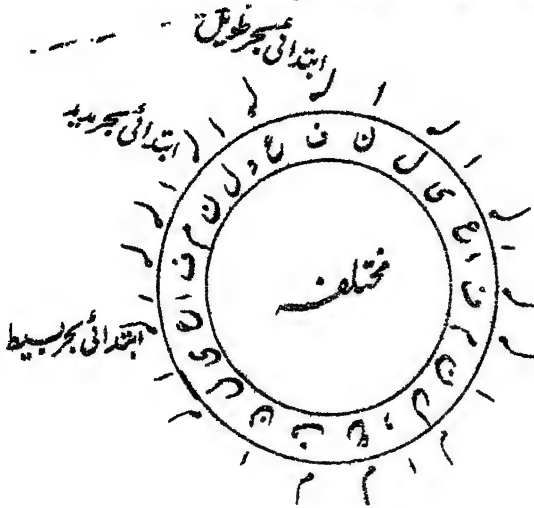 ابتدائی بحر طویل
ابتدائی بحر مدید
ابتدائی بحر بسیط
ف ع و ل ن م ف ا ع ی ل ن ف ع و ل ن م ف ا ع ی ل ن
مختلفہ